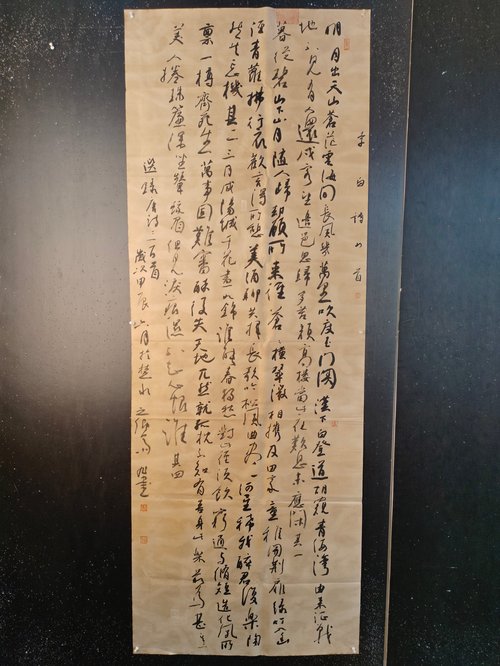 李白詩四首
明月出天山蒼茫雲海間長風幾萬里吹度玉门関漢下白登道胡窺青海灣由來征戰
地不見有人還戍客望邊邑思歸多苦顏高樓當此夜歎息未應閑其一
暮從碧山下山月隨人歸却顧所來徑蒼蒼橫翠微相攜及田家童稚開荊扉綠竹入幽
徑青蘿拂行衣歡言得所憩美酒聊共揮長歌吟松風曲盡河星稀我醉君復樂陶
然共忘機其二三月咸陽城千花晝如錦誰能春獨愁對此徑須飲窮通與脩短造化夙所
稟一樽齊死生萬事固難審醉後失天地兀然就孤枕不知有吾身此樂最為甚其三
美人捲珠簾深坐顰蛾眉但見淚痕濕不知心恨誰其四
選錄唐詩一百首
歲次甲辰六月於楚水之